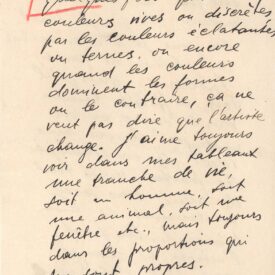 couleurs vives ou discrètes
par les couleurs éclatantes
ou ternes, ou encore
quand les couleurs
dominent les formes
ou le contraire, ça ne
veut pas dire que l'artiste
change. J'aime toujours
voir dans mes tableaux
une tranche de vie,
soit un homme, soit
une animal, soit une
fenêtre etc., mais toujours
dans les proportions qui
sont propres.